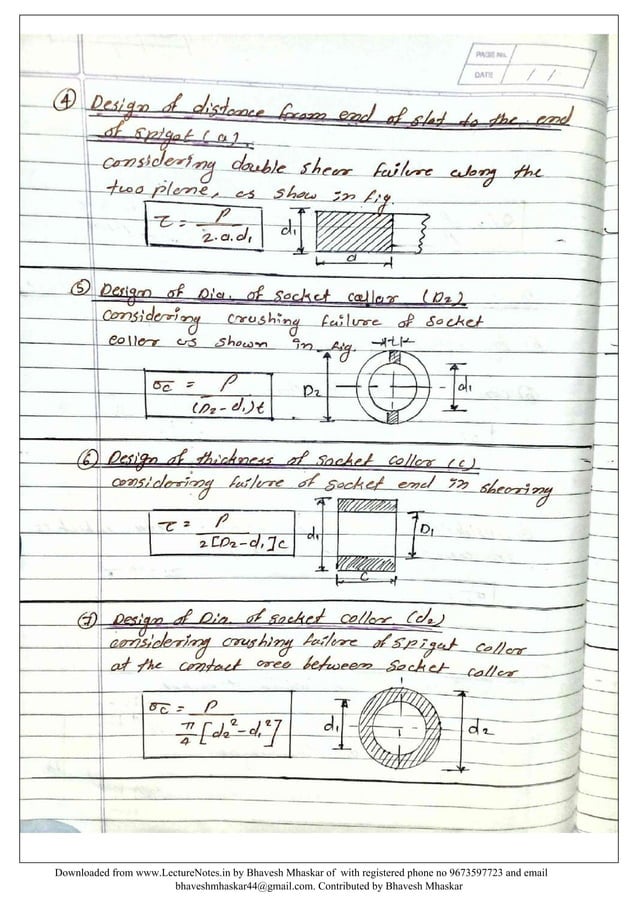 PAGE No.
DATE / /
④ Design of distance from end of slot to the end
of spigot (a).
considering double shear failure along the
two plane, as show in fig.
τ = P / 2.a.d₁
d₁
a
⑤ Design of Dia. of socket collar (D₂)
considering crushing failure of socket
collar as shown in fig.
t
σc = P / (D₂ - d₁)t
D₂
d₁
⑥ Design of thickness of socket collar (c)
considering failure of socket end in shearing
τ = P / 2[D₂ - d₁]c
d₁
D₁
c
⑦ Design of Dia. of socket collar (d₂)
considering crushing failure of spigot collar
at the contact area between socket collar
σc = P / π/4 [d₂² - d₁²]
d₁
d₂
Downloaded from www.LectureNotes.in by Bhavesh Mhaskar of with registered phone no 9673597723 and email
bhaveshmhaskar44@gmail.com. Contributed by Bhavesh Mhaskar